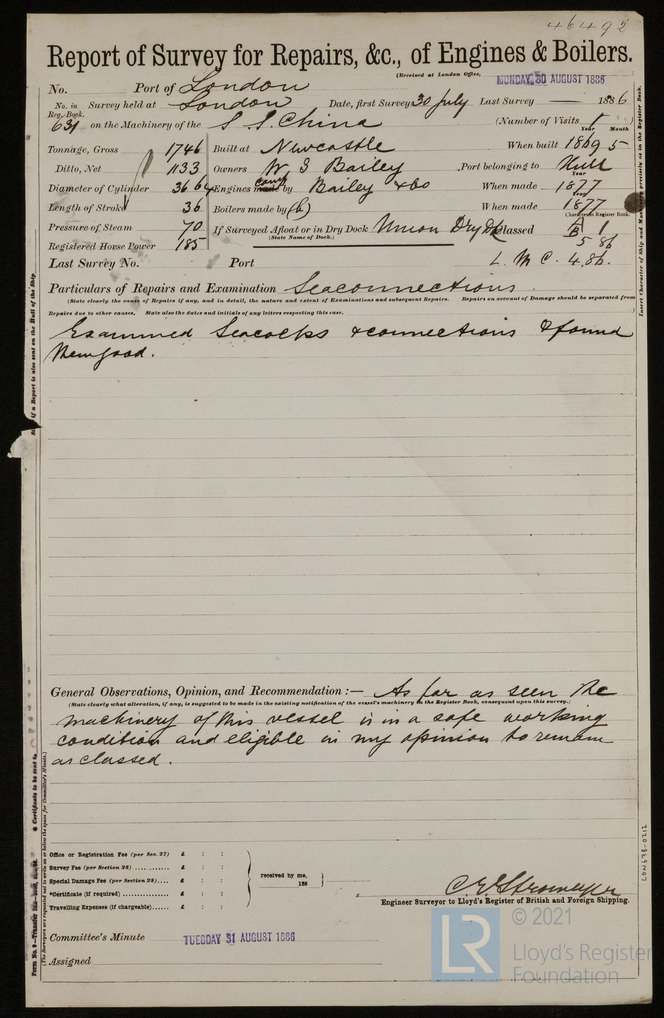 46492
Report of Survey for Repairs, &c., of Engines & Boilers.
(Received at London Office,
MONDAY, 30 AUGUST 1886
No. Port of London
No. in Reg. Book. Survey held at London Date, first Survey 30 July Last Survey — 1886
631 on the Machinery of the S S. China (Number of Visits 1
Year Month
Tonnage, Gross 1746 Built at Newcastle When built 1869 5
Ditto, Net 1133 Owners W S Bailey Port belonging to Hull
Year
Diameter of Cylinder 36 64 Engines made by Bailey & Co When made 1877
Year
Length of Stroke 36 Boilers made by (b) When made 1877
Character in Register Book.
Pressure of Steam 70 If Surveyed Afloat or in Dry Dock Union Dry Dk Classed A 1
(State Name of Dock.)
B 5 86
Registered Horse Power 185
Last Survey No. Port L. M C. 4,86.
Particulars of Repairs and Examination Seaconnections
(State clearly the cause of Repairs if any, and in detail, the nature and extent of Examinations and subsequent Repairs. Repairs on account of Damage should be separated from
Repairs due to other causes. State also the dates and initials of any letters respecting this case.
Examined Seacocks & connections & found
them good.
General Observations, Opinion, and Recommendation:— As far as seen the
(State clearly what alteration, if any, is suggested to be made in the existing notification of the vessel's machinery in the Register Book, consequent upon this survey.)
machinery of this vessel is in a safe working
condition and eligible in my opinion to remain
as classed.
Office or Registration Fee (per Sec. 27) £ : :
Survey Fee (per Section 28) £ : :
Special Damage Fee (per Section 28) £ : :
*Certificate (if required) £ : :
Travelling Expenses (if chargeable) £ : :
received by me,
188
C. E. Stromeyer
Engineer Surveyor to Lloyd's Register of British and Foreign Shipping.
Committee's Minute TUESDAY 31 AUGUST 1886
Assigned
Insert Character of Ship and Machinery precisely as in the Register Book.
if a Report is also sent on the Hull of the Ship
* Certificate to be sent to
(The Surveyors are requested not to write on or below the space for Committee's Minute.)
LON678-0212
LR
© 2021
Lloyd's Register
Foundation